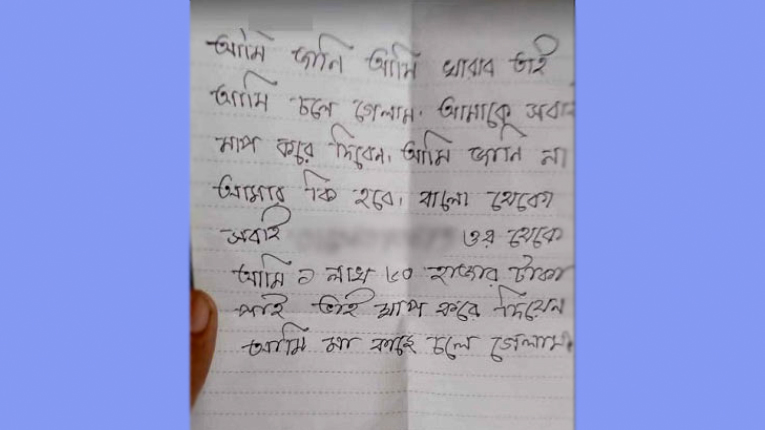 আমি জানি আমি খারাব তাই
আমি চলে গেলাম. আমাকে সবাই
মাপ করে দিবেন. আমি জানি না
আমার কি হবে. বালো থেকো
সবাই ওর থেকে
আমি ১ লাখ ৮০ হাজার টাকা
পাই তাই মাপ করে দিয়েন
আমি মা কাছে চলে গেলাম.